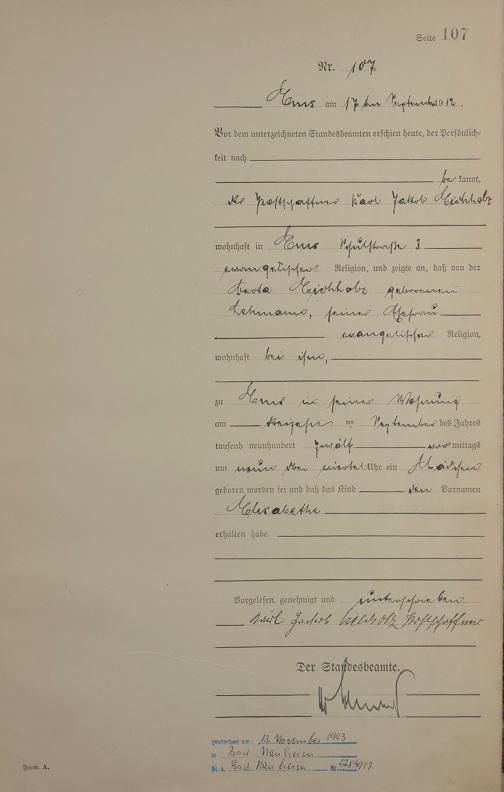 Seite 107
Nr. 107.
Ems am 17ten September 1912.
Vor dem unterzeichneten Standesbeamten erschien heute, der Persönlich-
keit nach
be kannt,
der Postschaffner Karl Jakob Eichholz
wohnhaft in Ems Schulstraße 3
evangelischer Religion, und zeigte an, daß von der
Berta Eichholz geborenen
Lehmann, seiner Ehefrau
evangelischer Religion,
wohnhaft bei ihm,
zu Ems in seiner Wohnung
am dreizehnten September des Jahres
tausend neunhundert zwölf vormittags
um neun drei viertel Uhr ein Mädchen
geboren worden sei und daß das Kind den Vornamen
Elisabethe
erhalten habe.
Vorgelesen, genehmigt und unterschrieben
Karl Jacob Eichholz Postschaffner
Der Standesbeamte.
gestorben am: 13. November 1993
in Bad Nauheim
St. A. Bad Nauheim Nr. 1993
Form. A.